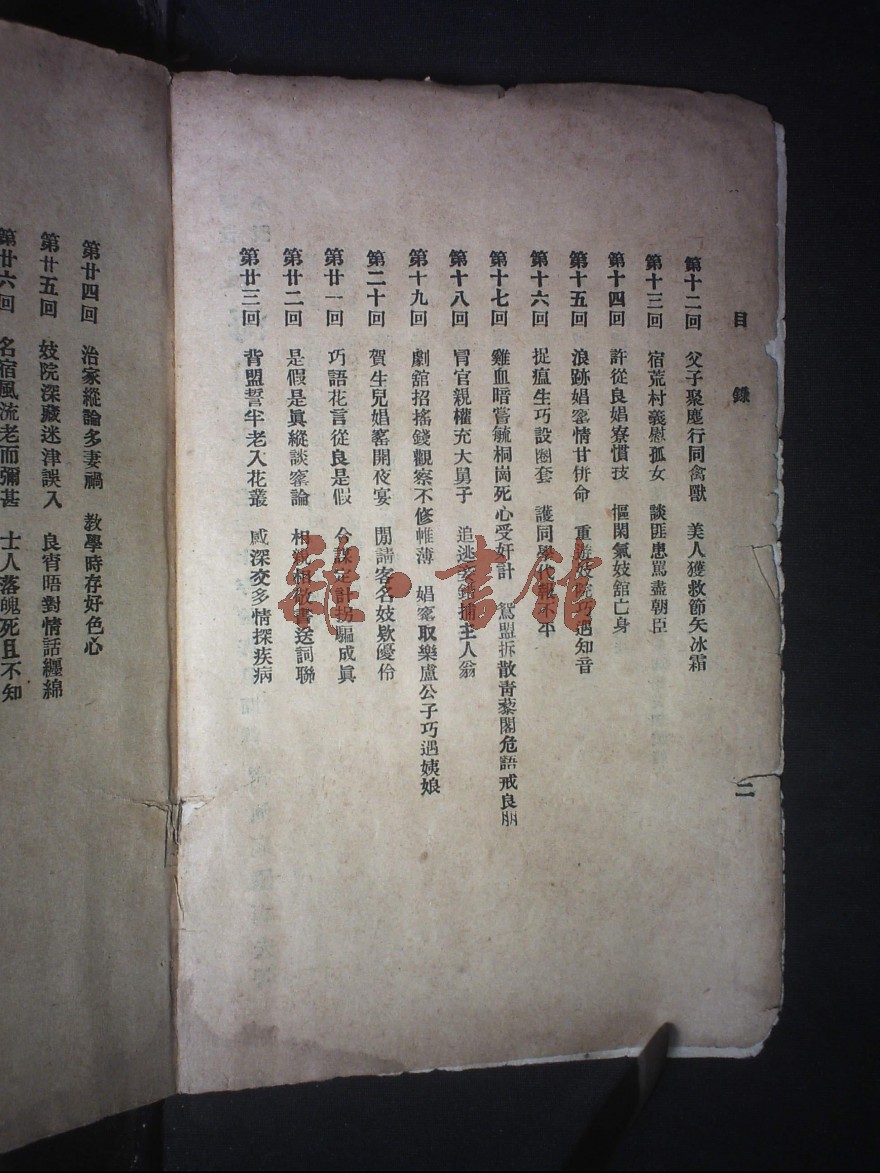 目錄
第十二回 父子聚麀行同禽獸 美人獲救節矢冰霜
第十三回 宿荒村義慰孤女 談匪患罵盡朝臣
第十四回 許從良娼寮慣技 慪閑氣妓舘亡身
第十五回 浪跡娼寮情甘併命 重游妓院巧遇知音
第十六回 捉瘟生巧設圈套 護同學代報不平
第十七回 雞血暗嘗毓桐崗死心受奸計 鴛盟拆散靑藜閣危語戒良朋
第十八回 冒官親權充大舅子 追逃妾錯捕主人翁
第十九回 劇舘招搖錢觀察不修帷薄 娼寮取樂盧公子巧遇姨娘
第二十回 賀生兒娼寮開夜宴 閒請客名妓欵優伶
第廿一回 巧語花言從良是假 今謀定計拐騙成眞
第廿二回 是假是眞縱談寮論 相敬書送詞聯
第廿三回 背盟誓半老入花叢 感深交多情探疾病
二
第廿四回 治家縱論多妻禍 教學時存好色心
第廿五回 妓院深藏迷津誤入 良宵晤對情話纒綿
第廿六回 名宿風流老而彌甚 士人落魄死且不知
雜·書館